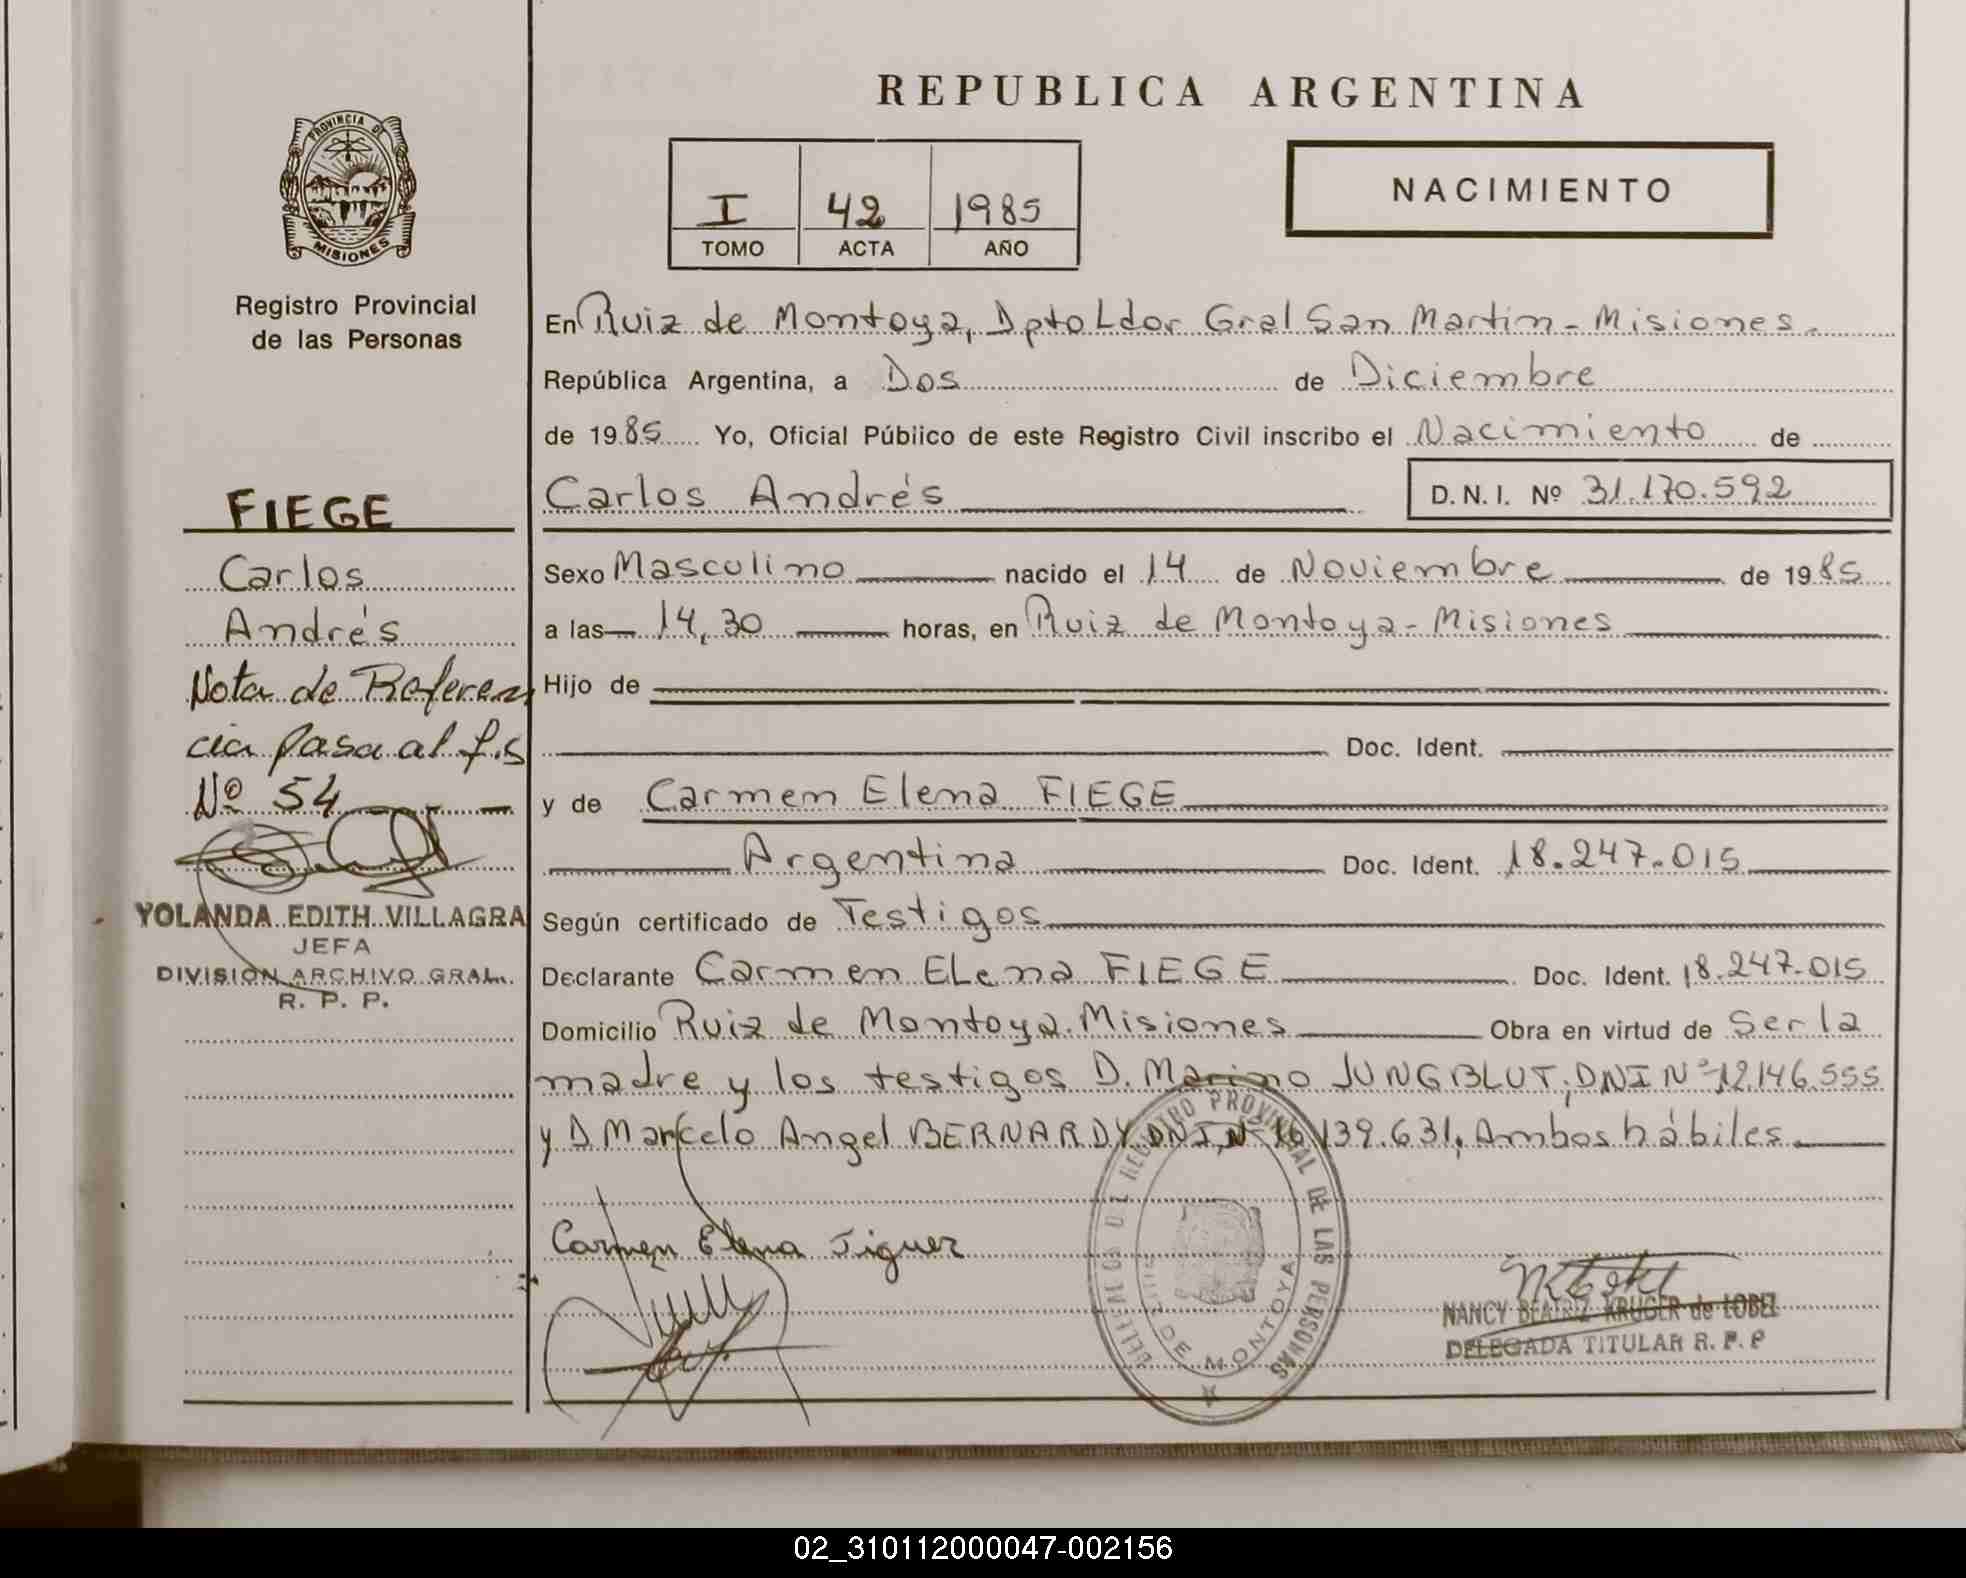 REPUBLICA ARGENTINA
PROVINCIA DE
MISIONES
Registro Provincial
de las Personas
I 42 1985
TOMO ACTA AÑO
NACIMIENTO
En Ruiz de Montoya, Dpto Ldor Gral San Martin - Misiones.
República Argentina, a Dos de Diciembre
de 1985 Yo, Oficial Público de este Registro Civil inscribo el Nacimiento de
Carlos Andrés D.N.I. Nº 31.170.592
Sexo Masculino nacido el 14 de Noviembre de 1985
a las 14,30 horas, en Ruiz de Montoya - Misiones
Hijo de
Doc. Ident.
y de Carmen Elena FIEGE
Argentina Doc. Ident. 18.247.015
Según certificado de Testigos
Declarante Carmen ELena FIEGE Doc. Ident. 18.247.015
Domicilio Ruiz de Montoya. Misiones Obra en virtud de Ser la
madre y los testigos D. Marino JUNGBLUT, DNI Nº 12.146.555
y D Marcelo Angel BERNARDY DNI Nº 16.139.631, Ambos hábiles.
FIEGE
Carlos
Andrés
Nota de Referen
cia pasa al f.s
Nº 54
YOLANDA EDITH VILLAGRA
JEFA
DIVISION ARCHIVO GRAL.
R. P. P.
Carmen Elena
DEL REGISTRO PROVINCIAL DE LAS PERSONAS
RUIZ DE MONTOYA
NANCY BEATRIZ KRUGER de LOBEL
DELEGADA TITULAR R. P. P
02_310112000047-002156